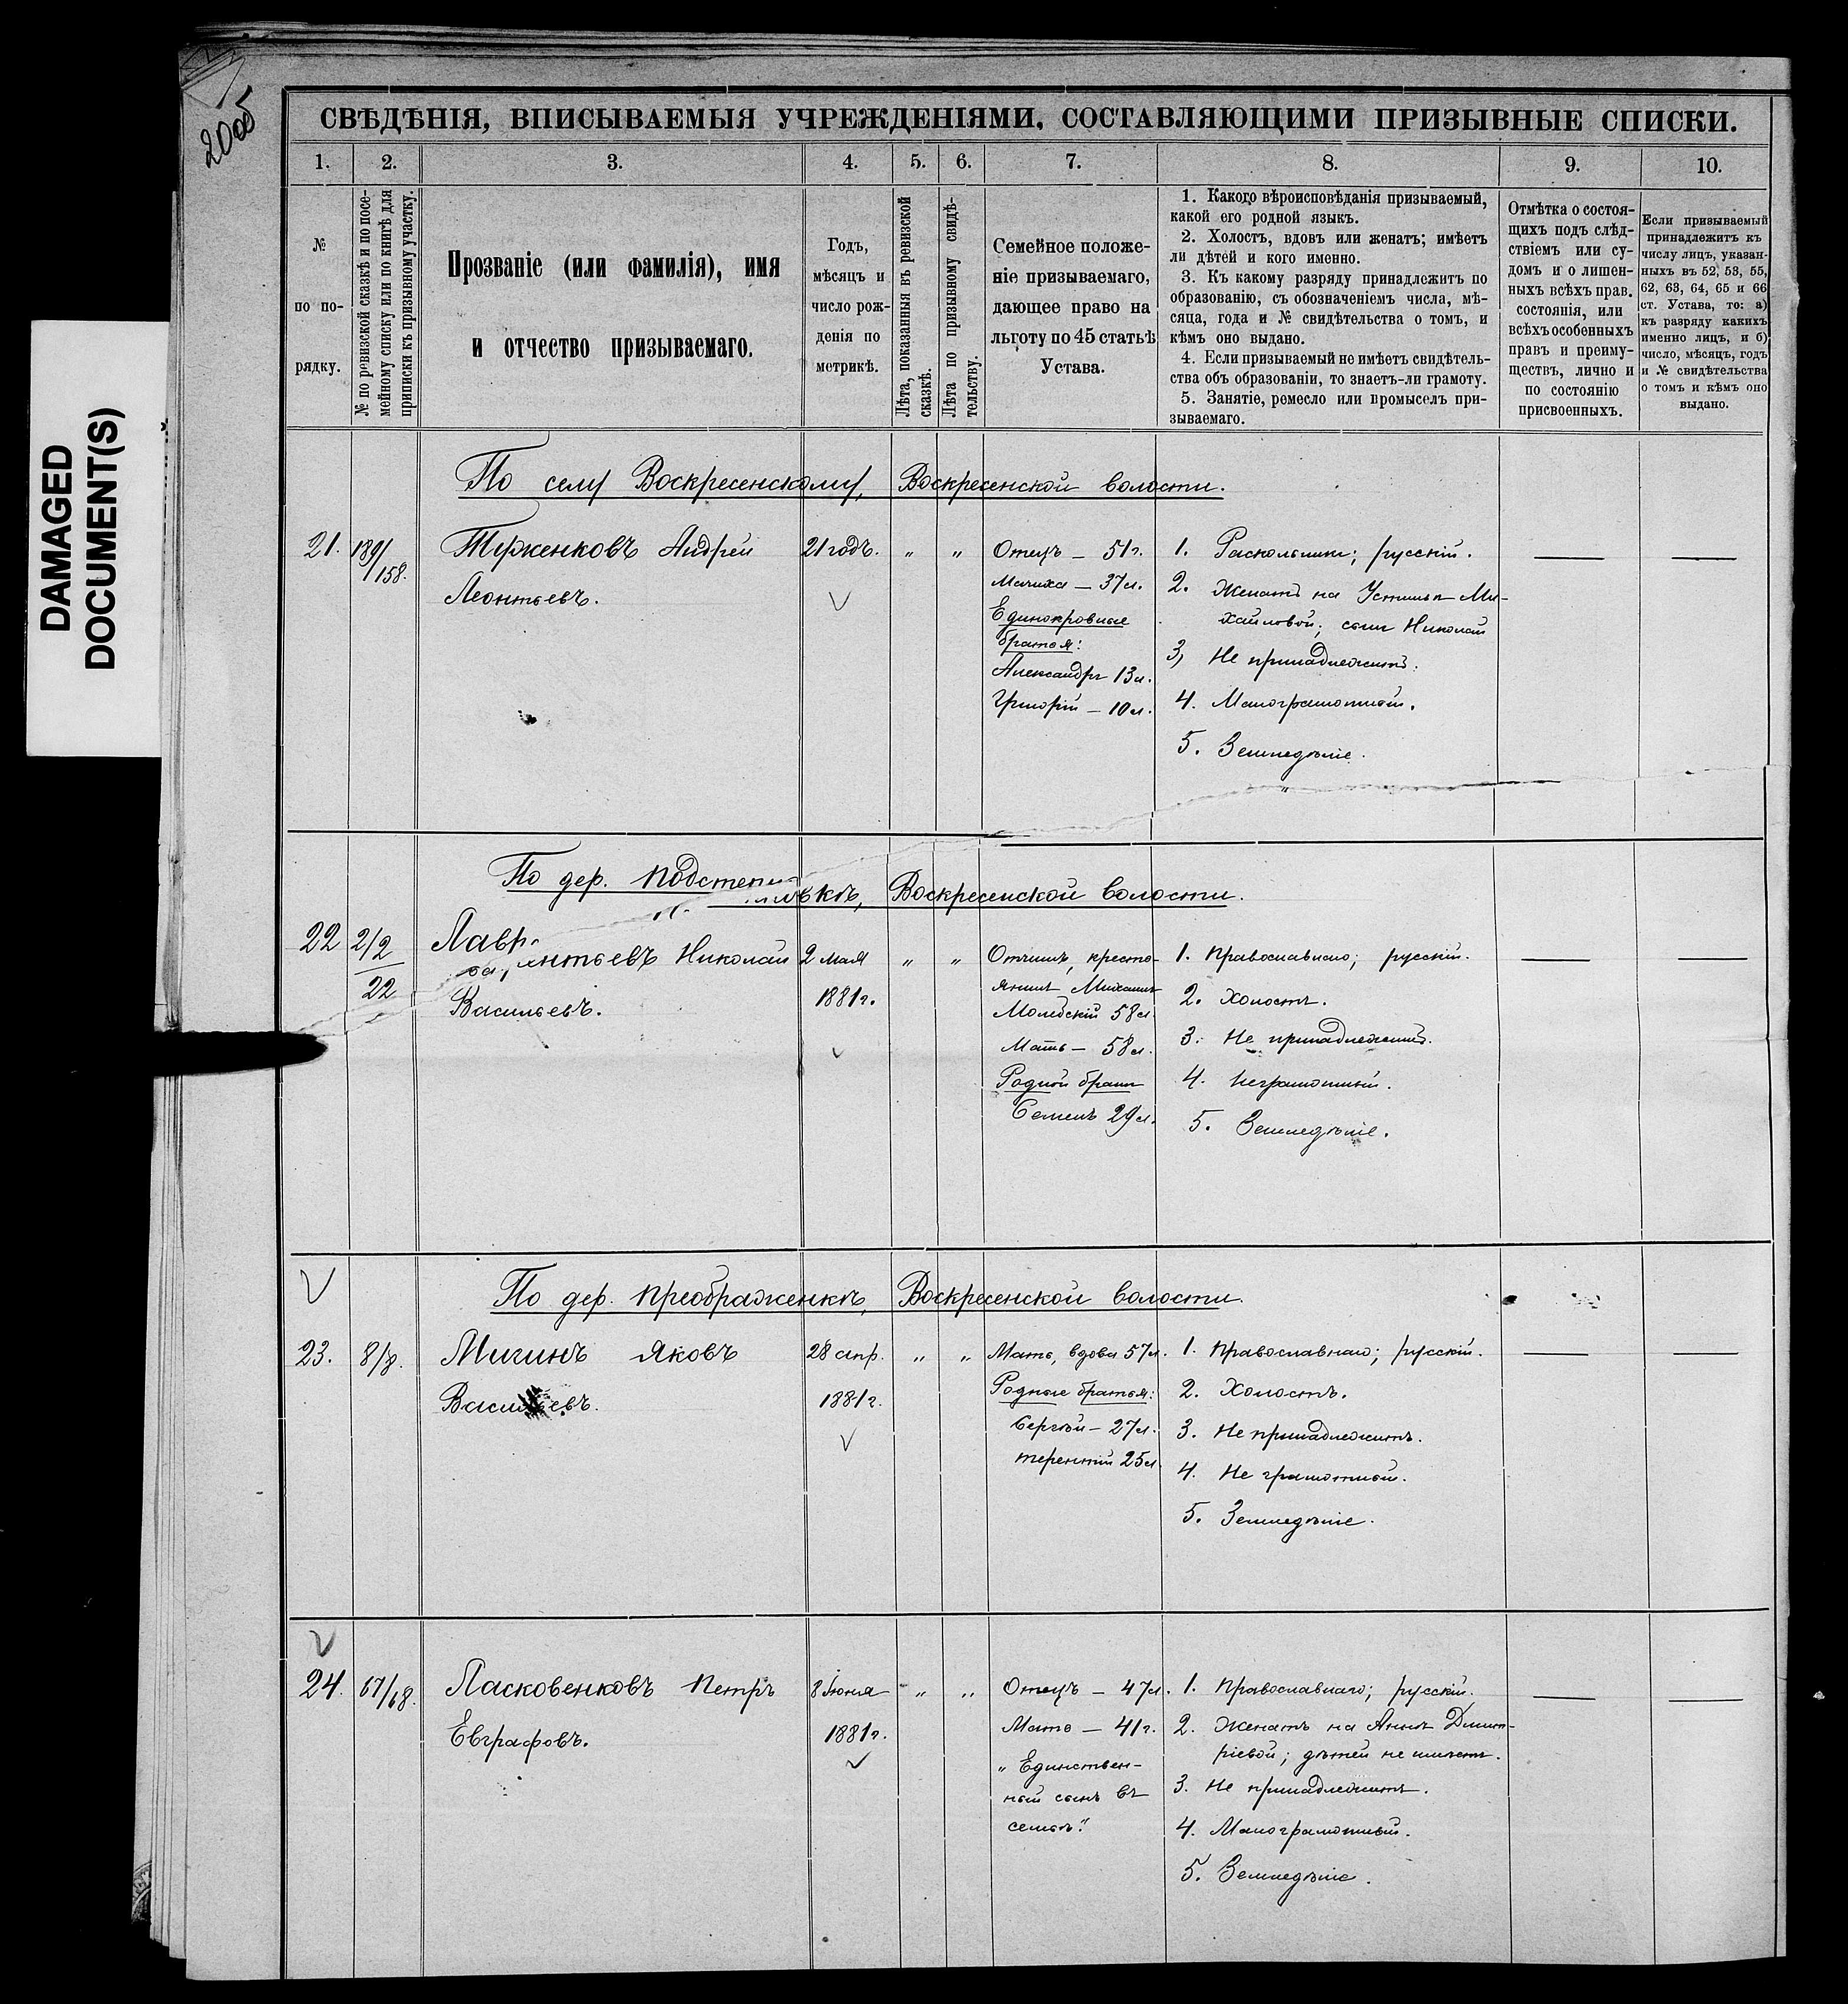 DAMAGED
DOCUMENT(S)
СВѢДѢНІЯ, ВПИСЫВАЕМЫЯ УЧРЕЖДЕНІЯМИ, СОСТАВЛЯЮЩИМИ ПРИЗЫВНЫЕ СПИСКИ.
1. 2. 3. 4. 5. 6. 7. 8. 9. 10.
№
по по-
рядку.
№ по ревизской сказкѣ и по посе-
мейному списку или по книгѣ для
приписки къ призывному участку.
Прозваніе (или фамилія), имя
и отчество призываемаго.
Годъ,
мѣсяцъ и
число рож-
денія по
метрикѣ.
Лѣта, показанныя въ ревизской
сказкѣ.
Лѣта по призывному свидѣ-
тельству.
Семейное положе-
ніе призываемаго,
дающее право на
льготу по 45 статьѣ
Устава.
1. Какого вѣроисповѣданія призываемый,
какой его родной языкъ.
2. Холостъ, вдовъ или женатъ; имѣетъ
ли дѣтей и кого именно.
3. Къ какому разряду принадлежитъ по
образованію, съ обозначеніемъ числа, мѣ-
сяца, года и № свидѣтельства о томъ, и
кѣмъ оно выдано.
4. Если призываемый не имѣетъ свидѣтель-
ства объ образованіи, то знаетъ-ли грамоту.
5. Занятіе, ремесло или промыселъ при-
зываемаго.
Отмѣтка о состоя-
щихъ подъ слѣд-
ствіемъ или су-
домъ и о лишен-
ныхъ всѣхъ прав.
состоянія, или
всѣхъ особенныхъ
правъ и преиму-
ществъ, лично и
по состоянію
присвоенныхъ.
Если призываемый
принадлежитъ къ
числу лицъ, указан-
ныхъ въ 52, 53, 55,
62, 63, 64, 65 и 66
ст. Устава, то: а)
къ разряду какихъ
именно лицъ, и б)
число, мѣсяцъ, годъ
и № свидѣтельства
о томъ и кѣмъ оно
выдано.
По селу Воскресенскому, Воскресенской волости.
21.
189/158.
Андрей
Леонтьевъ.
21 годъ.
" "
Отецъ – 51 г.
Мачиха – 37 л.
Единокровные
братья:
Александръ 13 л.
Григорій – 10 л.
1. Раскольникъ; русскій.
2. Женатъ на Устиньѣ Ми-
хайловой; сынъ Николай
3, Не принадлежитъ.
4. Малограмотный.
5. Земледѣліе.
По дер. Воскресенской волости.
22
2/2
22
Николай
Васильевъ.
2 мая
1881 г.
" "
Отчимъ, кресть-
янинъ Михаилъ
58 л.
Мать – 58 л.
Родной братъ
Семенъ 29 л.
1. Православнаго; русскій.
2. Холостъ.
3. Не принадлежитъ.
4. Неграмотный.
5. Земледѣліе.
По дер. Преображенкѣ, Воскресенской волости.
23.
8/8.
Мигинъ Яковъ
Васильевъ.
28 апр.
1881 г.
" "
Мать, вдова 57 л.
Родные братья:
Сергѣй – 27 л.
Терентій 25 л.
1. Православнаго; русскій.
2. Холостъ.
3. Не принадлежитъ.
4. Не грамотный.
5. Земледѣліе.
24.
67/68.
Ласковенковъ Петръ
Евграфовъ.
8 Іюня
1881 г.
" "
Отецъ – 47 л.
Мать – 41 г.
"Единствен-
ный сынъ въ
семьѣ."
1. Православнаго; русскій.
2. Женатъ на Аннѣ Димит-
ріевой; дѣтей не имѣетъ.
3. Не принадлежитъ.
4. Малограмотный.
5. Земледѣліе.